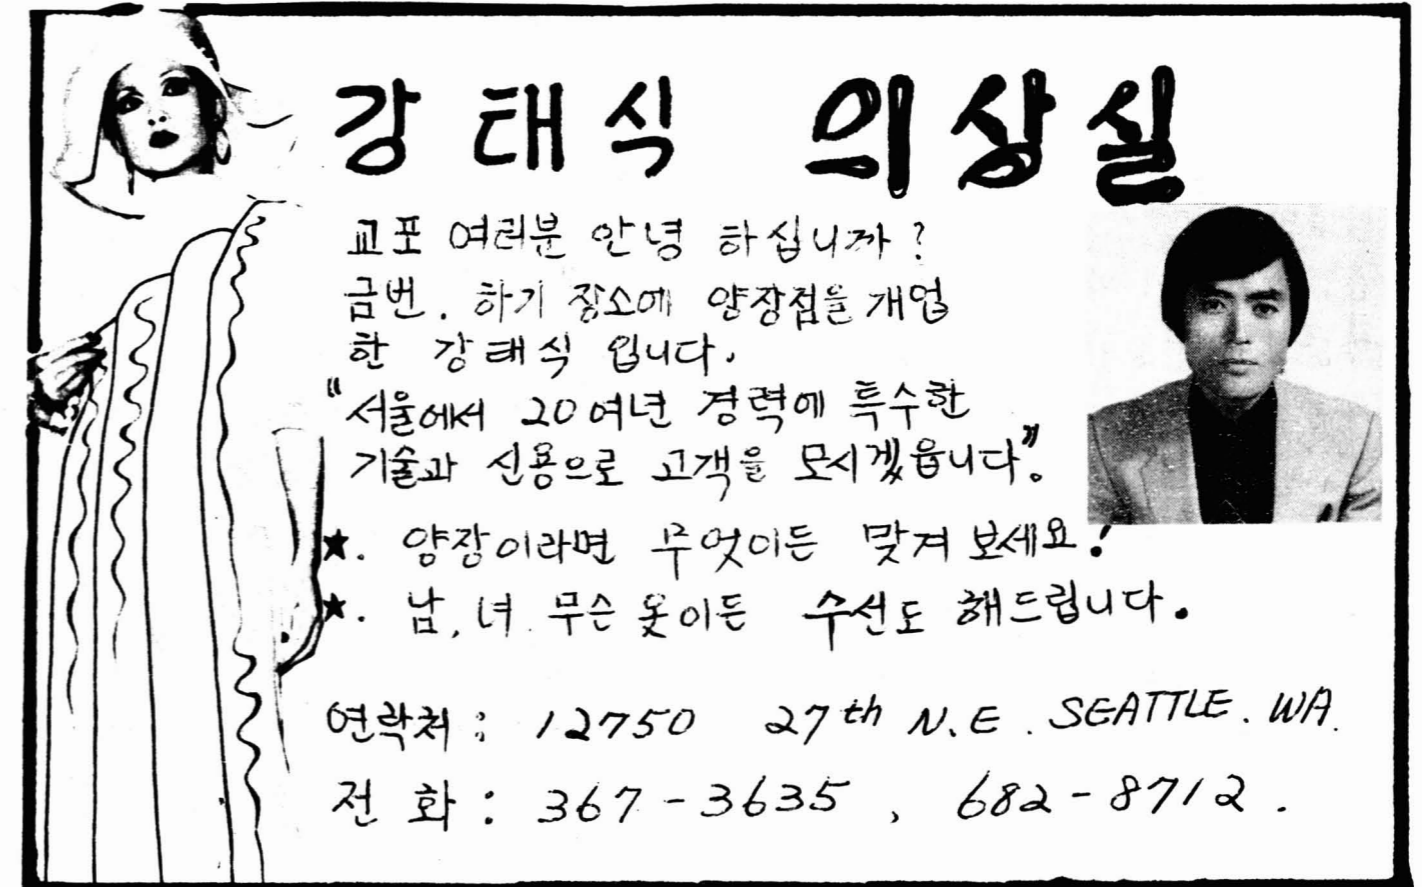 강태식 의상실
교포 여러분 안녕 하십니까?
금번. 하기 장소에 양장점을 개업
한 강태식 입니다.
"서울에서 20여년 경력에 특수한
기술과 신용으로 고객을 모시겠읍니다".
★. 양장이라면 무엇이든 맞겨 보세요!
★. 남, 녀. 무슨 옷이든 수선도 해드립니다.
연락처: 12750 27th N.E. SEATTLE. WA.
전화: 367-3635, 682-8712.